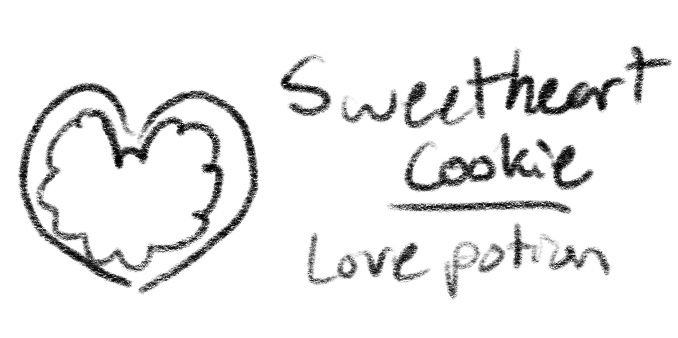 Sweetheart
Cookie
Love potion